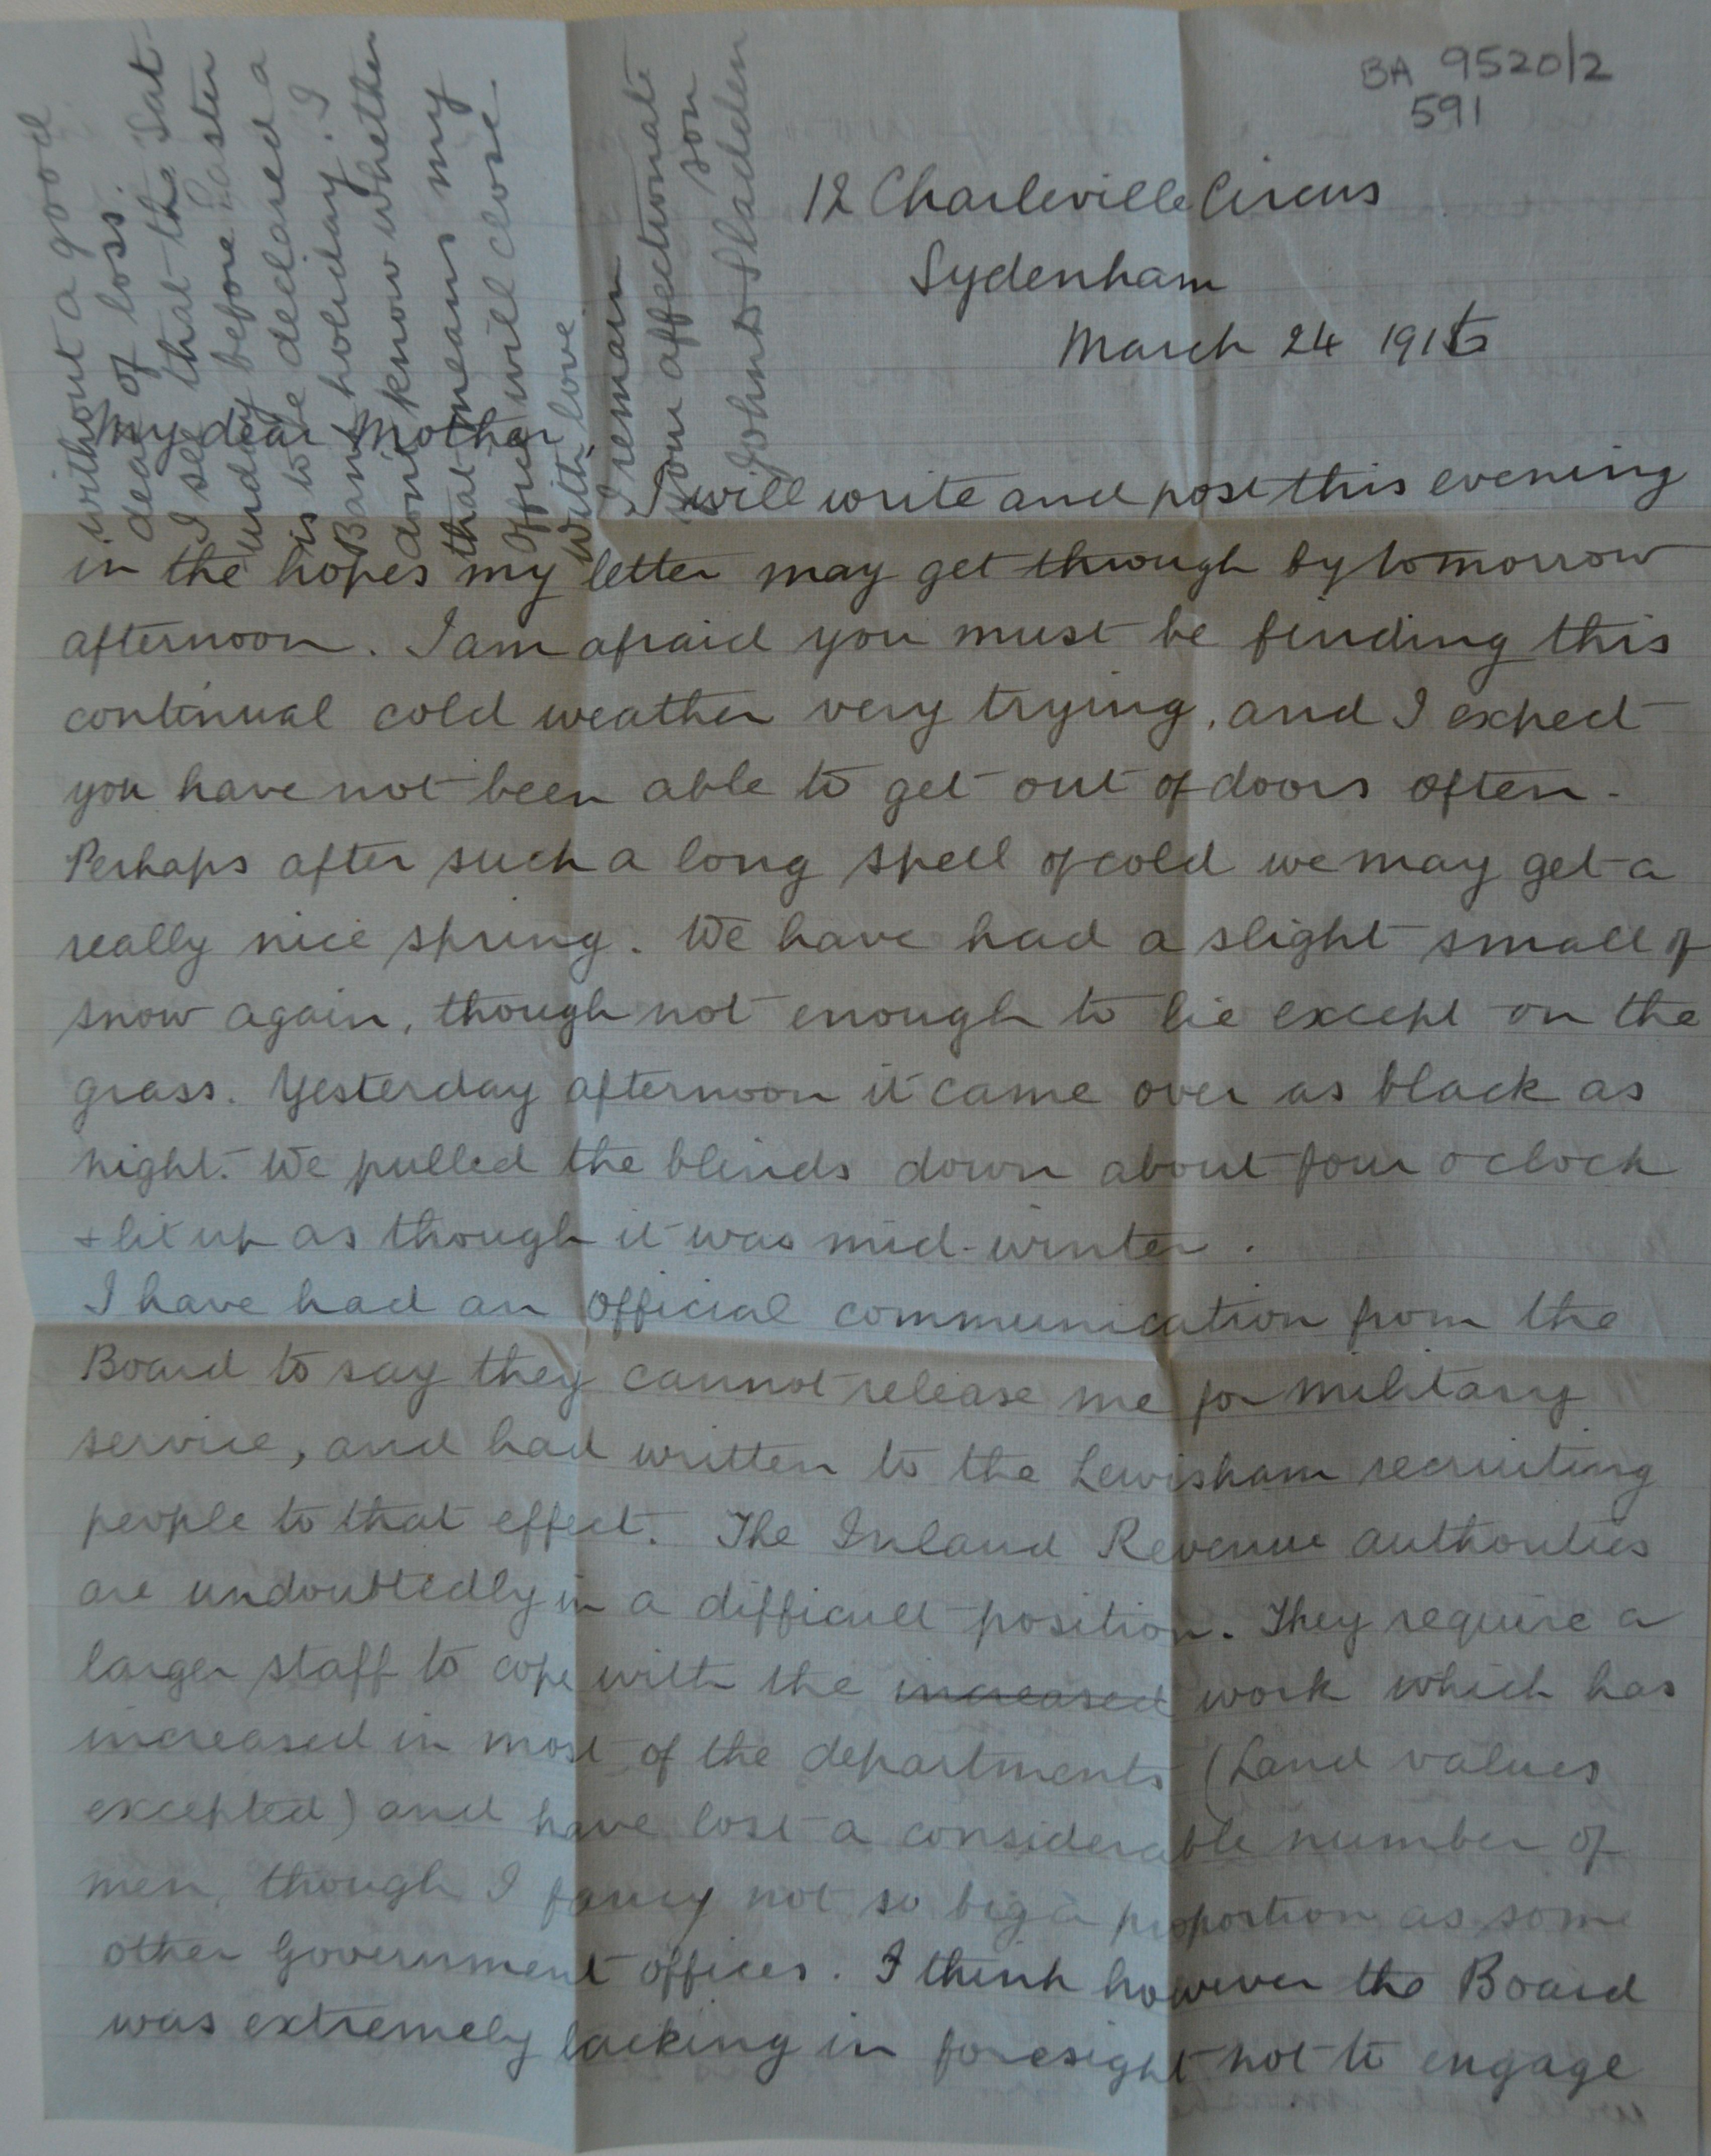 BA 9520/2
591
12 Charleville Circus
Sydenham
March 24 1916
My dear Mother,
I will write and post this evening
in the hopes my letter may get through by tomorrow
afternoon. I am afraid you must be finding this
continual cold weather very trying, and I expect
you have not been able to get out of doors often.
Perhaps after such a long spell of cold we may get a
really nice spring. We have had a slight small of
snow again, though not enough to lie except on the
grass. Yesterday afternoon it came over as black as
night. We pulled the blinds down about four o'clock
& lit up as though it was mid-winter.
I have had an official communication from the
Board to say they cannot release me for military
service, and had written to the Lewisham recruiting
people to that effect. The Inland Revenue authorities
are undoubtedly in a difficult position. They require a
larger staff to cope with the increased work which has
increased in most of the departments (Land values
excepted) and have lost a considerable number of
men, though I fancy not so big a proportion as some
other Government offices. I think however the Board
was extremely lacking in foresight not to engage
without a good
deal of loss.
I see that the Sat-
urday before Easter
is to be declared a
Bank holiday. I
don't know whether
that means my
Office will close.
With love
I remain
your affectionate
son
John D Sladden